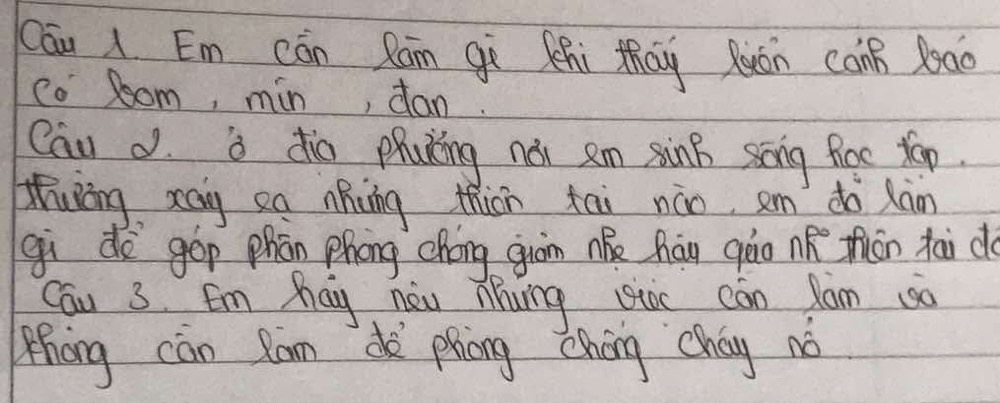 Câu 1. Em cần làm gì khi thấy biển cảnh báo
có bom, mìn, đạn.
Câu 2. ở địa phương nơi em sinh sống học tập.
thường xảy ra những thiên tai nào. em đã làm
gì để góp phần phòng chống giảm nhẹ hậu quả thiên tai đó
Câu 3. Em hãy nêu những việc cần làm và
không cần làm để phòng chống cháy nổ